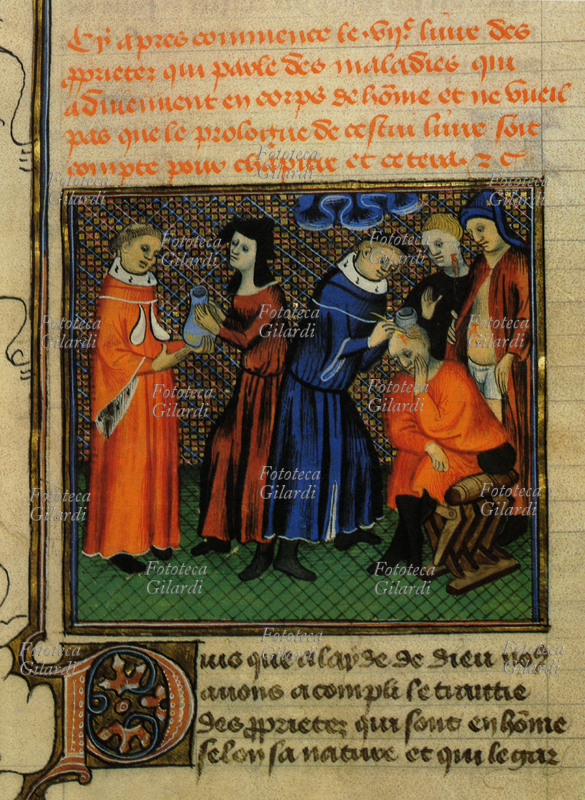 Cy apres commence le .vijᵉ. liure des
ꝓprietez qui parle des maladies qui
aduiennent en corps de hōme et ne vueil
pas que le prologue de cestui liure soit
compte pour chappitre et cetera. ⁊ c
Puis que a layde de dieu noᵘˢ
auons acompli le traittie
des ꝓprietez qui sont en hōme
selon sa nature et qui le gar
Fototeca
Gilardi